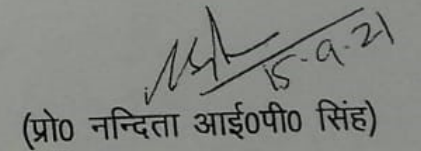 15.9.21
(प्रो0 नन्दिता आई0पी0 सिंह)